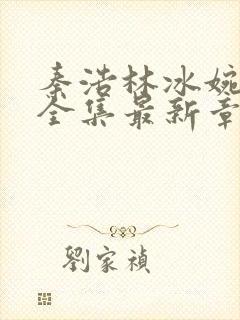 秦浩林冰婉
全集最新章
劉家禎